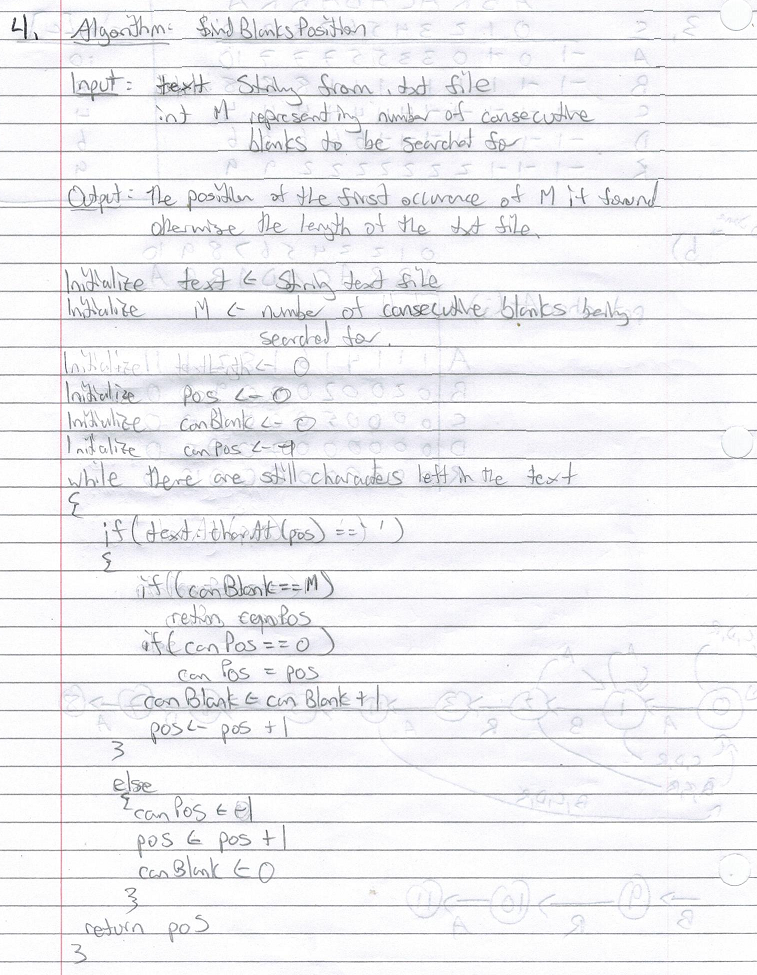 4. Algorithm: findBlanksPosition
Input: text String from .txt file
int M representing number of consecutive
blanks to be searched for
Output: The position of the first occurence of M if found
otherwise the length of the txt file.
Initialize text ← String text file
Initialize M ← number of consecutive blanks being
searched for.
Initialize ← 0
Initialize pos ← 0
Initialize conBlank ← 0
Initalize conPos ←
while there are still characters left in the text
{
if(text.charAt(pos) == ' ')
{
if((conBlank==M)
return conPos
if(conPos==0)
conPos = pos
conBlank ← conBlank +1
pos ← pos +1
}
else
{ conPos ←
pos ← pos +1
conBlank ← 0
}
return pos
}